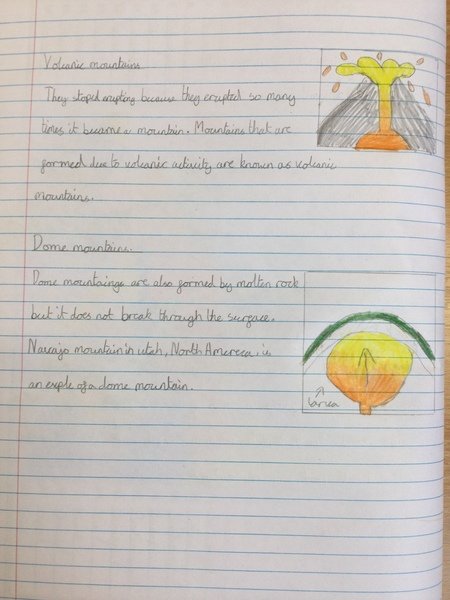 Volcanic mountains
They stoped erupting because they erupted so many
times it became a mountain. Mountains that are
formed due to volcanic activity are known as volcanic
mountains.
Dome mountains.
Dome mountainge are also formed by molten rock
but it does not break through the surface.
Navajo mountain in utah, North Amereca, is
an exple of a dome mountain.